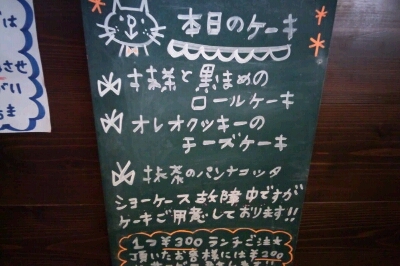 本日のケーキ
抹様と黒まめの
ロールケーキ
オレオクッキーの
チーズケーキ
抹茶のパンナコッタ
ショーケース故障中ですが
ケーキご用意しております!!
1つ¥300 ランチご注★
頂いたお客様には¥200